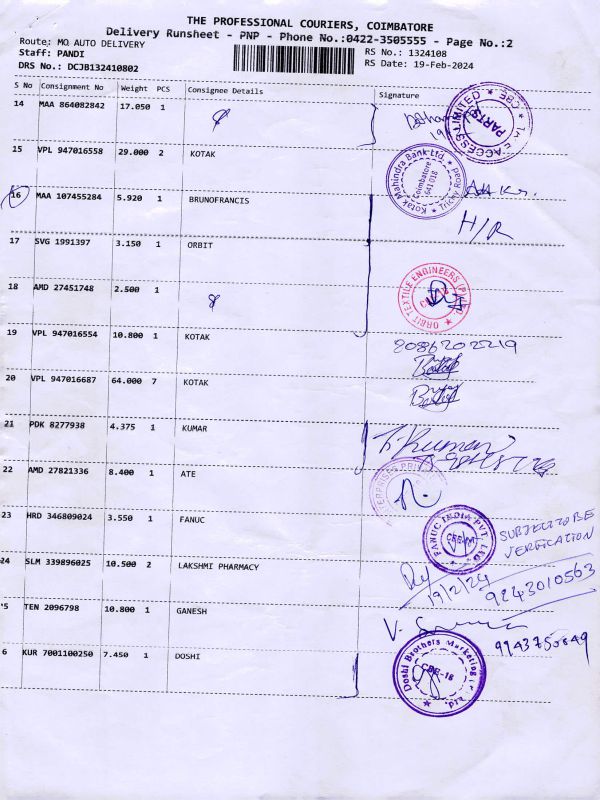 THE PROFESSIONAL COURIERS, COIMBATORE
Delivery Runsheet - PNP - Phone No.:0422-3505555 - Page No.:2
Route: MO AUTO DELIVERY RS No.: 1324108
Staff: PANDI RS Date: 19-Feb-2024
DRS No.: DCJB132410802
S No Consignment No Weight PCS Consignee Details Signature
14 MAA 864082842 17.050 1
ACCESS LIMITED PARTS CBE
15 VPL 947016558 29.000 2 KOTAK
Kotak Mahindra Bank Ltd. Coimbatore 641 018 Trichy Road
16 MAA 107455284 5.920 1 BRUNOFRANCIS
H/R
17 SVG 1991397 3.150 1 ORBIT
ORBIT TEXTILE ENGINEERS
18 AMD 27451748 2.500 1
19 VPL 947016554 10.800 1 KOTAK
20 VPL 947016687 64.000 7 KOTAK
21 PDK 8277938 4.375 1 KUMAR
22 AMD 27821336 8.400 1 ATE
23 HRD 346809024 3.550 1 FANUC
FANUC INDIA PVT. LTD.
SUBJECT TO BE
VERIFICATION
24 SLM 339896025 10.500 2 LAKSHMI PHARMACY
19/2/24
9243010563
5 TEN 2096798 10.800 1 GANESH
9943750849
6 KUR 7001100250 7.450 1 DOSHI
Doshi Brothers Marketing CBE-18